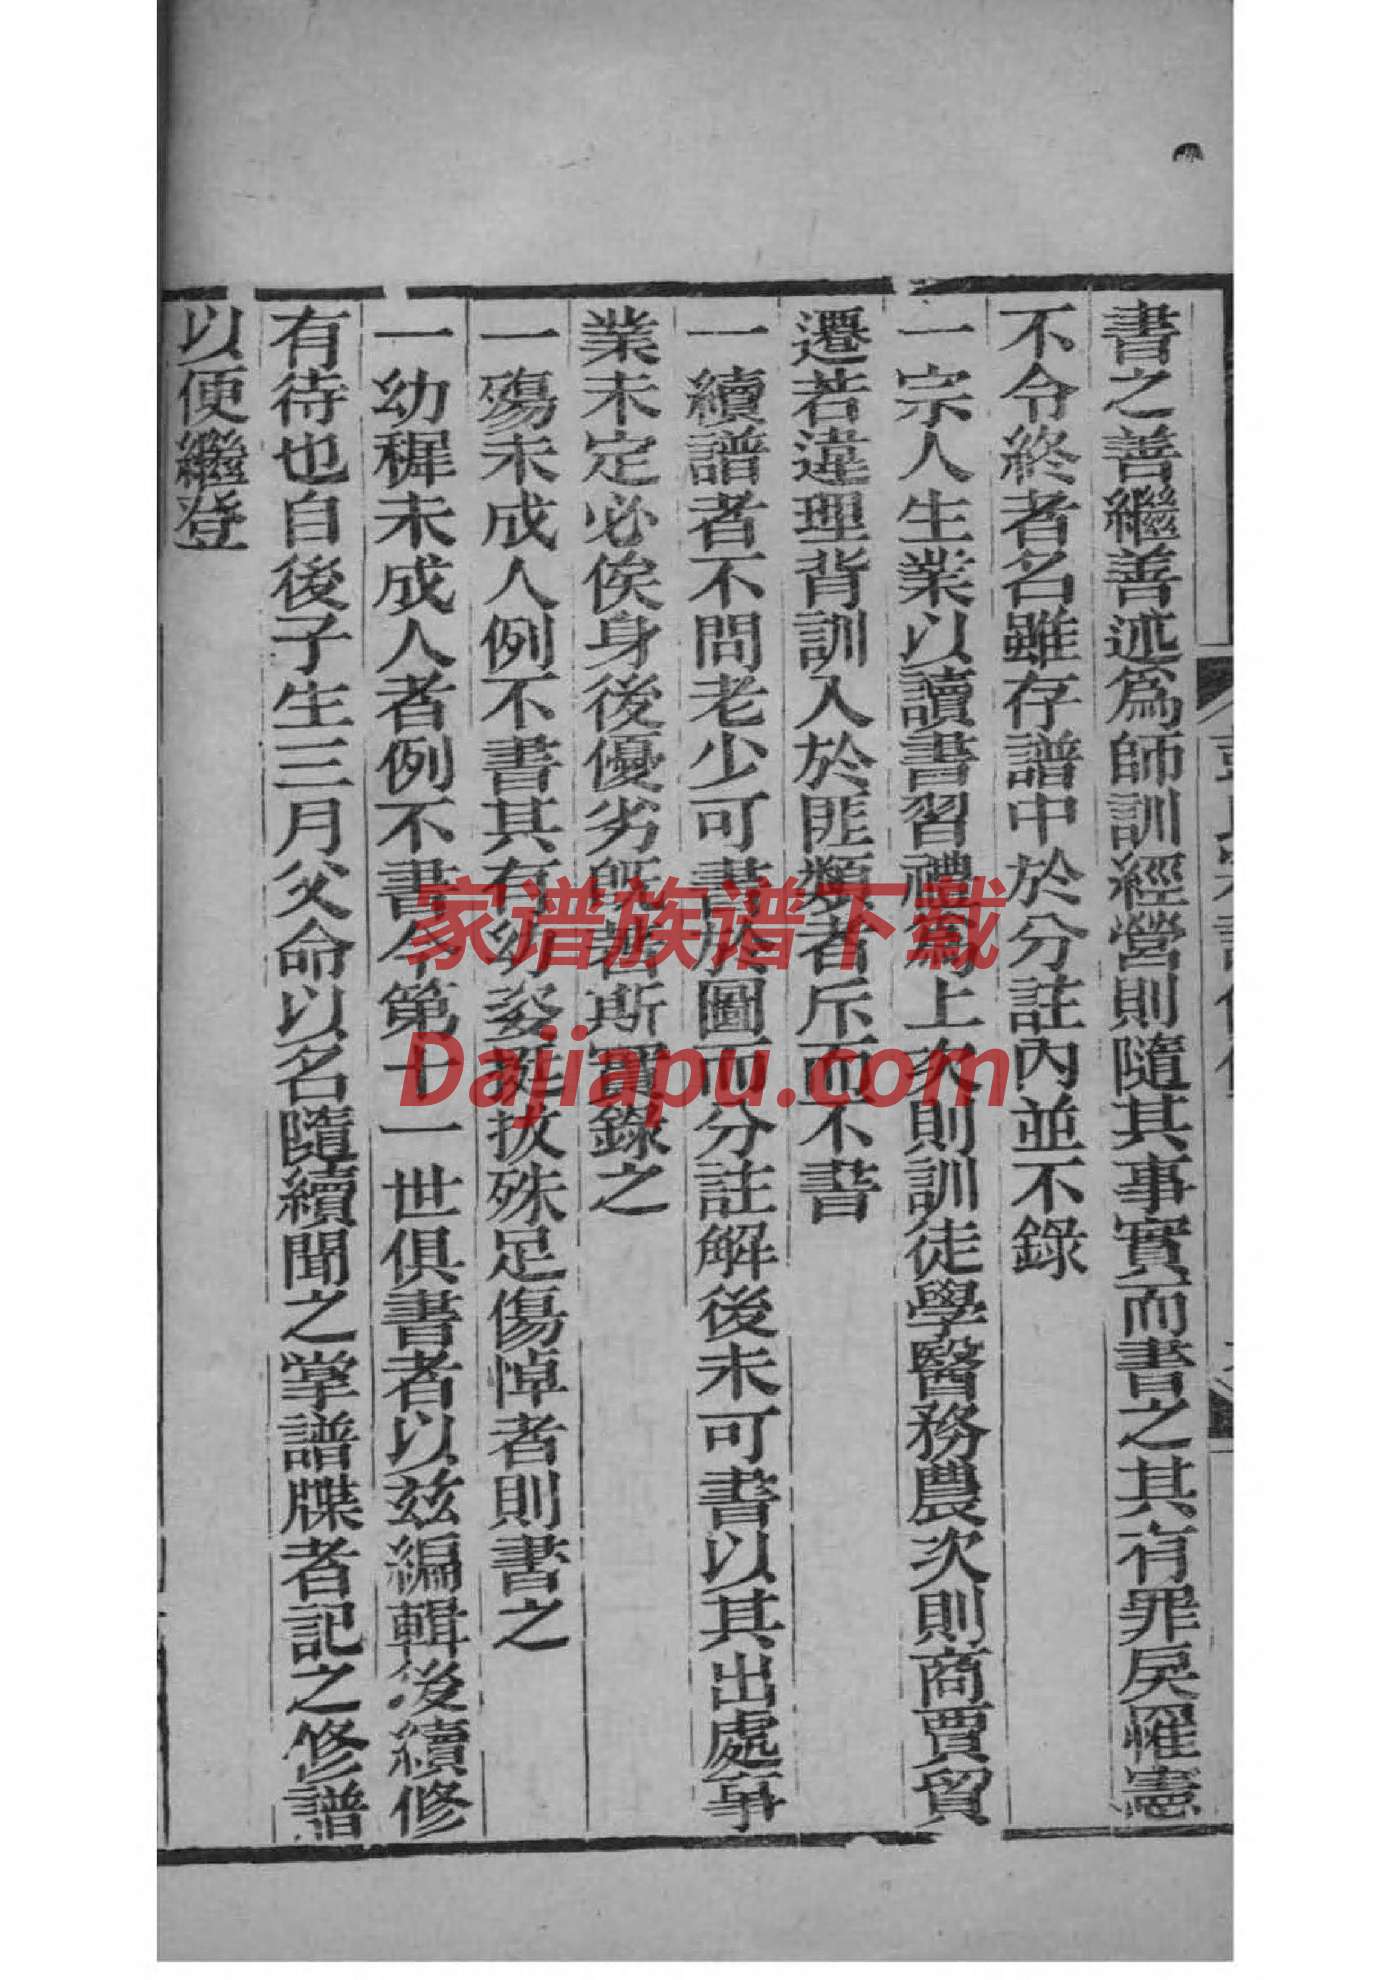 書之善繼善述爲師訓經營則隨其事實而書之其有罪戾罹憲
不令終者名雖存譜中於分註內並不錄
一宗人生業以讀書習禮爲上次則訓徒學醫務農次則商賈貿
遷若違理背訓入於匪類者斥而不書
一續譜者不問老少可書於圖而分註解後未可書以其出處事
業未定必俟身後優劣既著斯實錄之
一殤未成人例不書其有幼姿挺拔殊足傷悼者則書之
一幼穉未成人者例不書今第十一世俱書者以茲編輯後續修
有待也自後子生三月父命以名隨續聞之掌譜牒者記之修譜
以便繼登
家谱族谱下载
Dajiapu.com